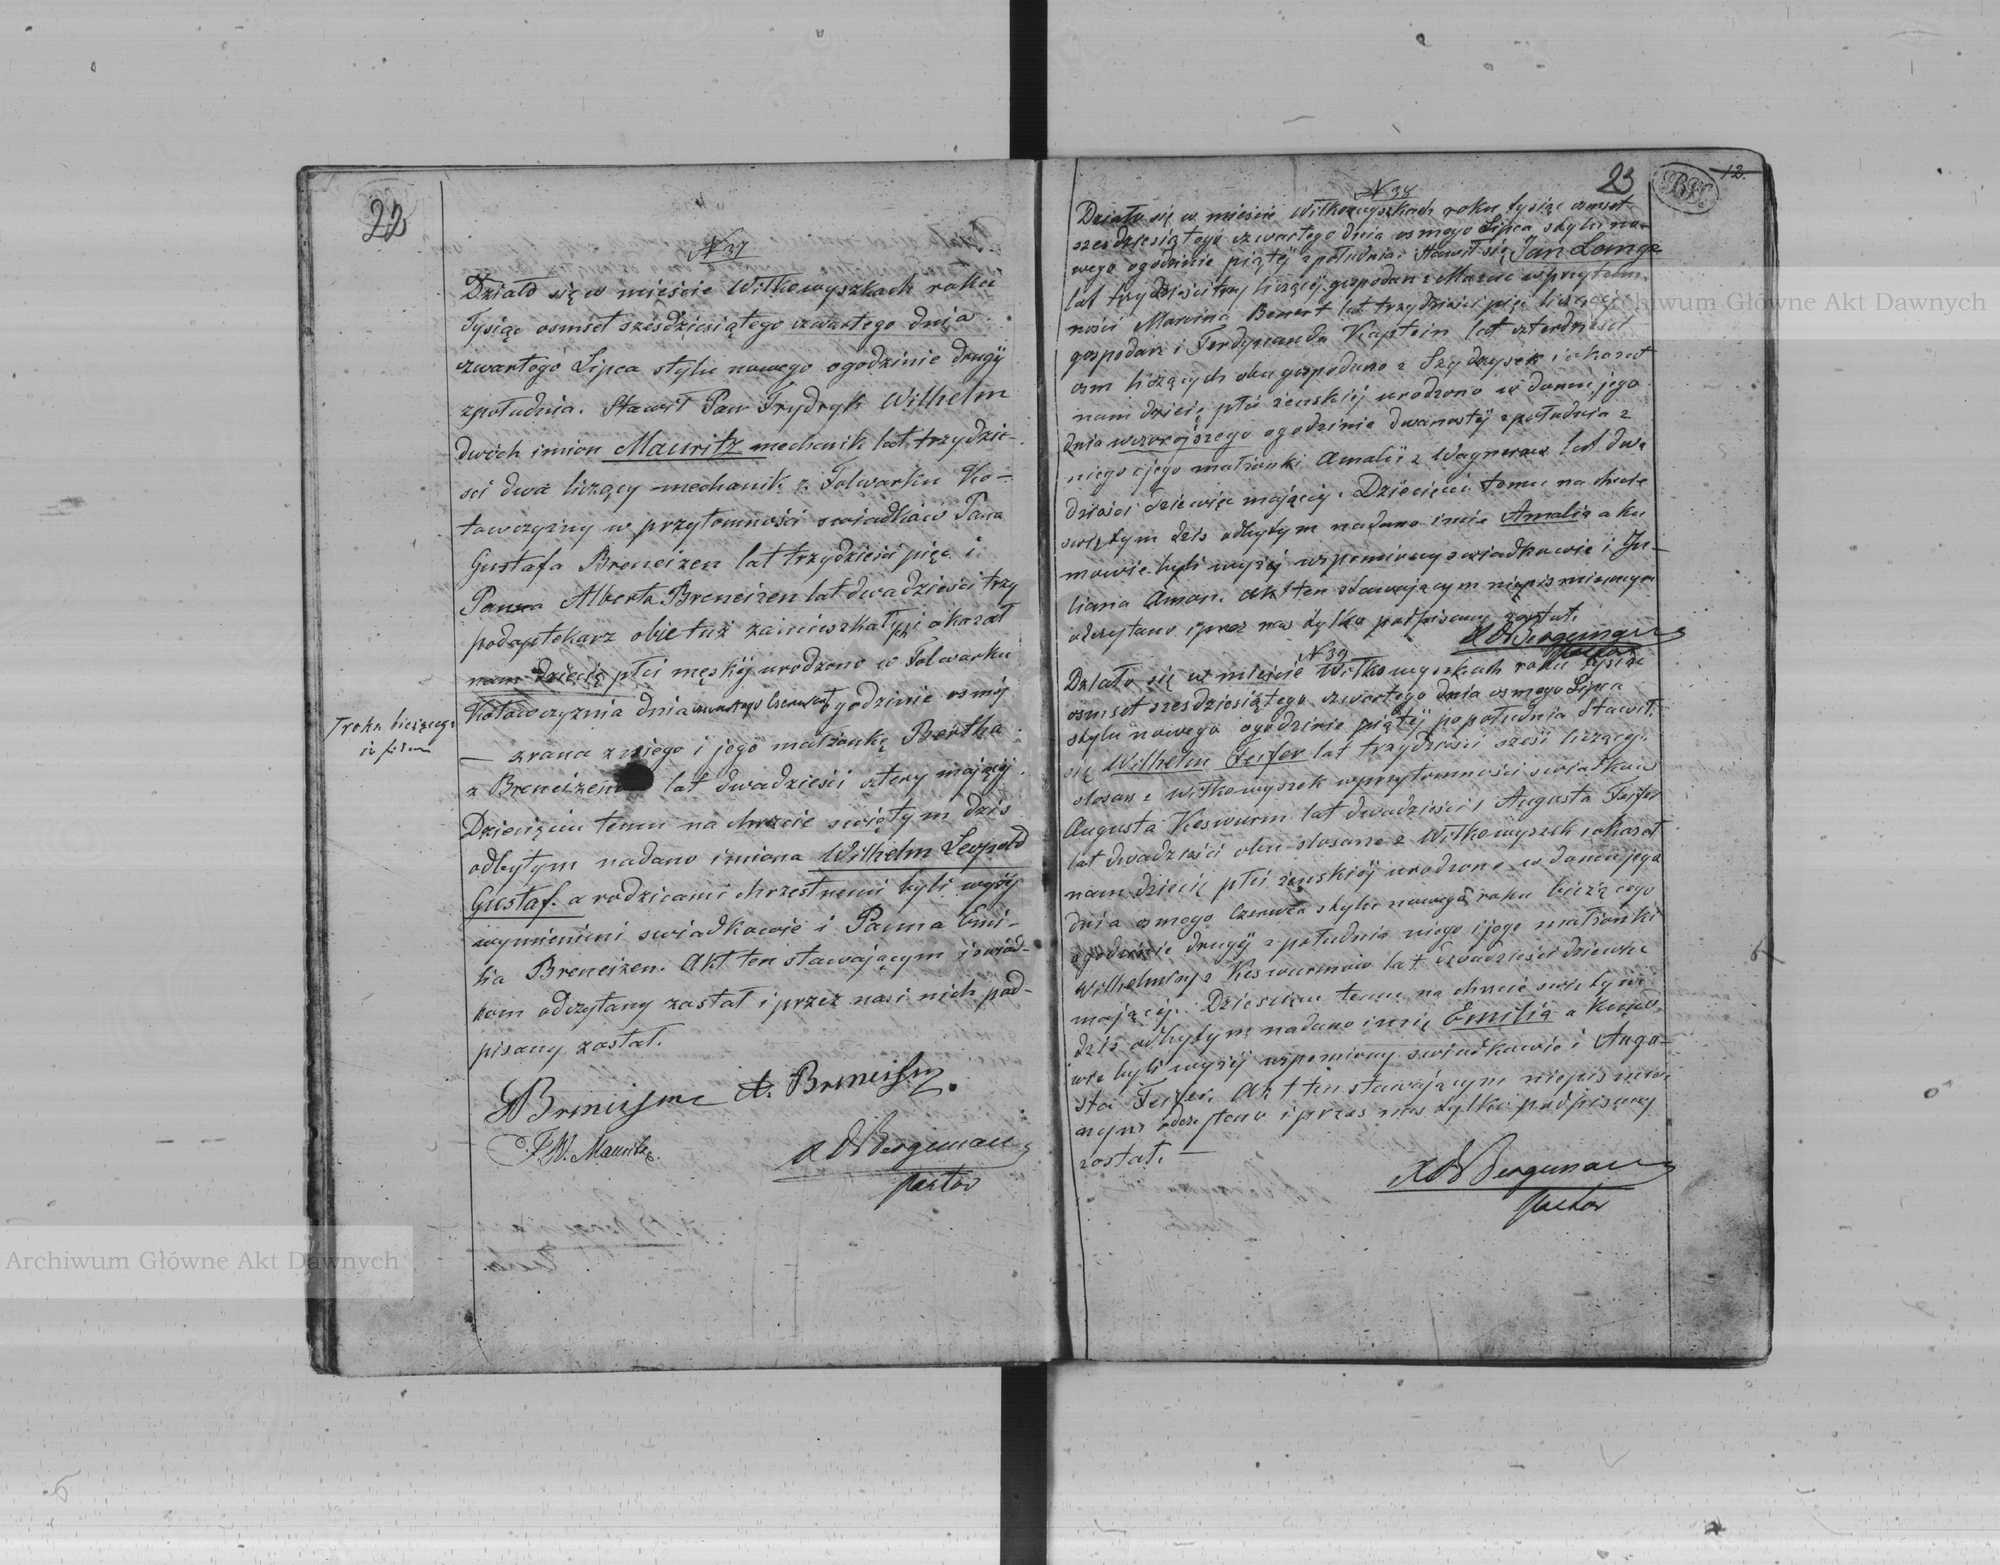 22
N 37
Działo się w mieście Wiłkowyszkach roku
Tysiąc osmset sześdziesiątego czwartego dnia
czwartego Lipca stylu nowego ogodzinie drugiy
zpołudnia. Stawił Pan Frydryk Wilhelm
dwóch imion Mauritz mechanik lat trzydzie-
sci dwa liczący mechanik z Folwarku Ko-
towczyzny w przytomności swiadków Pana
Gustafa Breneizen lat trzydzieści pięć i
Pana Alberta Breneizen lat dwadzieści trzy
podaptekarz obie tuż zamieszkały i okazał
nam dziecię płci męskiy urodzone w Folwarku
Kotowczyznia dnia czwartego Czerwca godzinie osmiy
T roku bieżącego
— zrana z niego i jego małżonkę Bertha
z Breneizen lat dwadzieści cztery mającéy
Dziecięciu temu na chrzcie swiętym dzis
odbytym nadano imiona Wilhelm Leopold
Gustaf. a rodzicami chrzestnemi byli wyżéy
wymienieni swiadkowie i Panna Emi-
lia Breneizen. Akt ten stawającym i swiad-
kom odczytany został i przez nas i nich pod-
pisany został.
GBreneisen A. Breneisen
F.W. Mauritz.
X A Bergeman
Pastor
23
12.
N 38
Działo się w mieście Wiłkowyszkach roku tysiąc osmset
szesdziesiątego czwartego dnia osmego Lipca stylu no-
wego ogodzinie piątéy zpołudnia. Stawił się Jan Lemge
lat trzydzieści trzy liczący gospodarz z w przytom-
ności Marcina Benert lat trzydzieści pięć liczący
gospodarz i Ferdynanda Kaptein lat czterdzieści
osm liczących obu gospodarze z Szydzyszek i okazał
nam dziecię płci żenskiéy urodzone w domu jego
dnia wczorajszego ogodzinie dwanastéy zpołudnia z
niego i jego małżonki Amalii z Wagnerow lat dwa
dzieści dziewięć mającéy. Dziecięciu temu na chrzcie
swiętym dzis odbytym nadano imie Amalia a ku
mowie byli wyżéy wspomniony swiadkowie i Ju-
liana Aman. Akt ten stawającym niepismiennym
odczytano i przez nas tylko podpisany został.
X A Bergeman
Pastor
N 39
Działo się w mieście Wiłkowyszkach roku tysiąc
osmset szesdziesiątego czwartego dnia osmego Lipca
stylu nowego ogodzinie piątéy popołudnia Stawił
się Wilhelm Feifer lat trzydzieści szesć liczący
slosarz z Wiłkowyszek w przytomności swiadków
Augusta Keswurm lat dwadzieści i Augusta Feifer
lat dwadzieści obu slosarze z Wiłkowyszek i okazał
nam dziecię płci żenskiéy urodzone w domu jego
dnia osmego Czerwca stylu nowego roku bieżącego
ogodzinie drugiéy zpołudnia niego i jego małżonki
Wilhelminy z Keswurmów lat dwadzieści dziewięć
mającéy. Dziecięciu temu na chrzcie swiętym
dzis odbytym nadano imię Emilia a kumo
wie byli wyżéy wspomniony swiadkowie i Augu-
sta Feifer. Akt ten stawającym niepismien
nym odczytano i przez nas tylko podpisany
został. —
X A Bergeman
Pastor
Archiwum Główne Akt Dawnych
Archiwum Główne Akt Dawnych